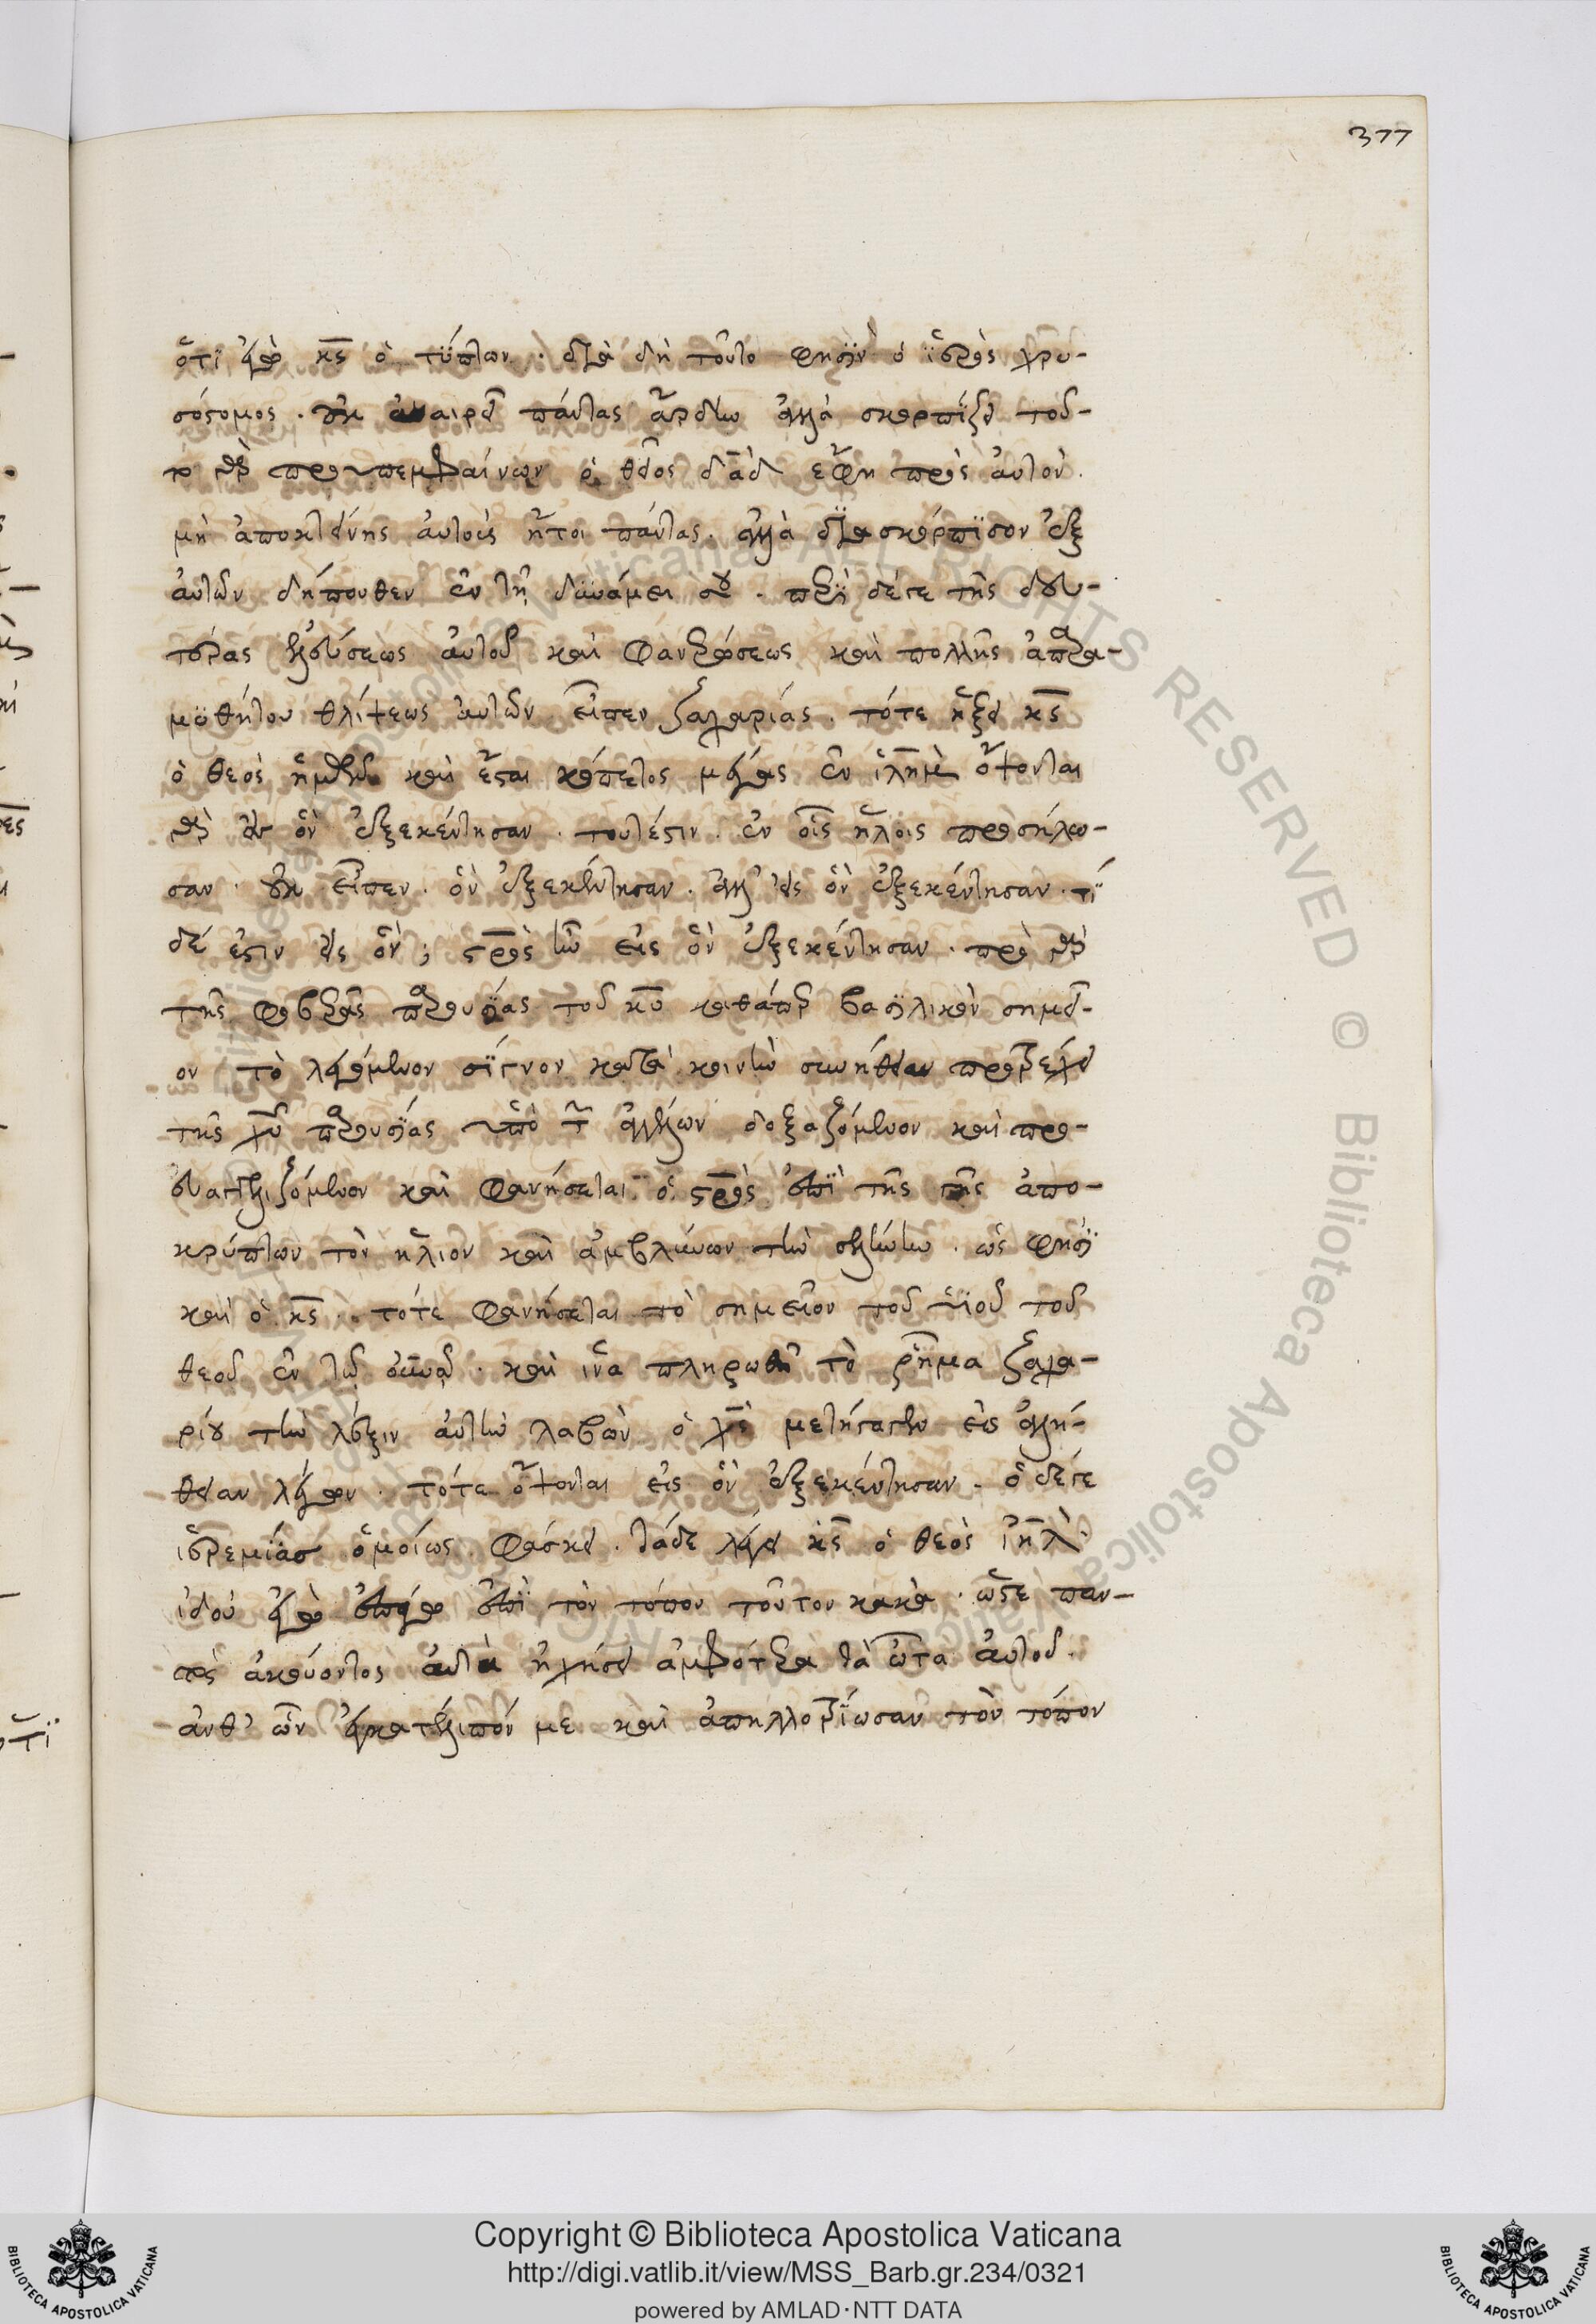 377
ὅτι ἐγὼ κς ὁ τύπτων. διὰ δὴ τοῦτο φησὶν ὁ ἱερὸς χρυ-
σόστομος. οὐκ ἀναιρεῖ πάντας ἄρδην ἀλλὰ σκορπίζει τοῦ-
μὴ ἀποκτείνῃς αὐτοὺς ἤτοι πάντας. ἀλλὰ διασκόρπισον ἐξ
αὐτῶν δήπουθεν ἐν τῇ δυνάμει σου. περὶ δέγε τῆς δευ-
τέρας ἐλεύσεως αὐτοῦ καὶ φανερώσεως καὶ πολλῆς ἀπαρα-
μυθήτου θλίψεως αὐτῶν εἶπεν ζαχαρίας. τότε ἥξει κς
ὁ θεὸς ἡμῶν καὶ ἔσται κόπετος μέγας ἐν ἱλημ ὄψονται
ὃν ἐξεκέντησαν. τουτέστιν. ἐν οἷς ἥλοις προσήλω-
σαν. οὐκ εἶπεν. ὃν ἐξεκέντησαν. ἀλλ' εἰς ὃν ἐξεκέντησαν. τί
δέ ἐστιν εἰς ὃν; στρος ἦν εἰς ὃν ἐξεκέντησαν. πρὸ γὰρ
τῆς φοβερᾶς παρουσίας τοῦ κυ καθάπερ βασιλικὸν σημεῖ-
ον τὸ λεγόμενον σίγνον κατὰ κοινὴν συνήθειαν προτρέχει
τῆς χυ παρουσίας ὑπὸ τῶν ἀγγέλων δοξαζόμενον καὶ προ-
βασταζόμενον καὶ φανήσεται ὁ στρος ἐπὶ τῆς γῆς ἀπο-
κρύπτων τὸν ἥλιον καὶ ἀμβλύνων τὴν σελήνην. ὥς φησι
καὶ ὁ κς. τότε φανήσεται τὸ σημεῖον τοῦ υἱοῦ τοῦ
θεοῦ ἐν τῷ ουνῷ. καὶ ἵνα πληρωθῇ τὸ ῥῆμα ζαχα-
ρίου τὴν λέξιν αὐτὴν λαβὼν ὁ χς μετήγαγεν εἰς ἀλή-
θειαν λέγων. τότε ὄψονται εἰς ὃν ἐξεκέντησαν. ὁ δέγε
ἱερεμίας ὁμοίως φάσκει. τάδε λέγει κς ὁ θεὸς ιηλ.
ἰδοὺ ἐγὼ ἐπάγω ἐπὶ τὸν τόπον τοῦτον κακὰ. ὥστε παν-
τὸς ἀκούοντος αὐτὰ ἠχήσει ἀμφότερα τὰ ὦτα αὐτοῦ.
ἀνθ' ὧν ἐγκατέλιπόν με καὶ ἀπηλλοτρίωσαν τὸν τόπον
Copyright © Biblioteca Apostolica Vaticana
http://digi.vatlib.it/view/MSS_Barb.gr.234/0321
powered by AMLAD·NTT DATA